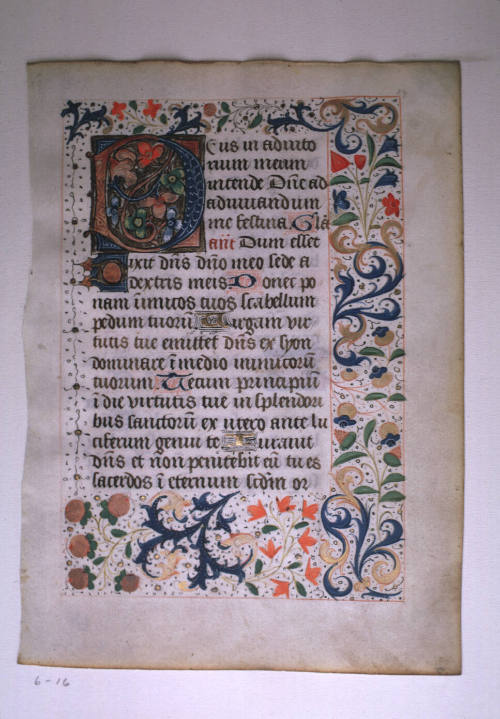 Deus in adiuto
rium meum
intende Dñe ad
adiuuandum
me festina Gla
añt Dum esset
Dixit dñs dño meo sede a
dextris meis Donec po
nam inimicos tuos scabellum
pedum tuorū Uirgam vir
tutis tue emittet dñs ex syon
dominare ī medio inimicorū
tuorum Tecum principiū
ī die virtutis tue in splendori
bus sanctorum ex utero ante lu
ciferum genui te Iurauit
dñs et non penitebit eū tu es
sacerdos ī eternum scdm̄ or
6-16